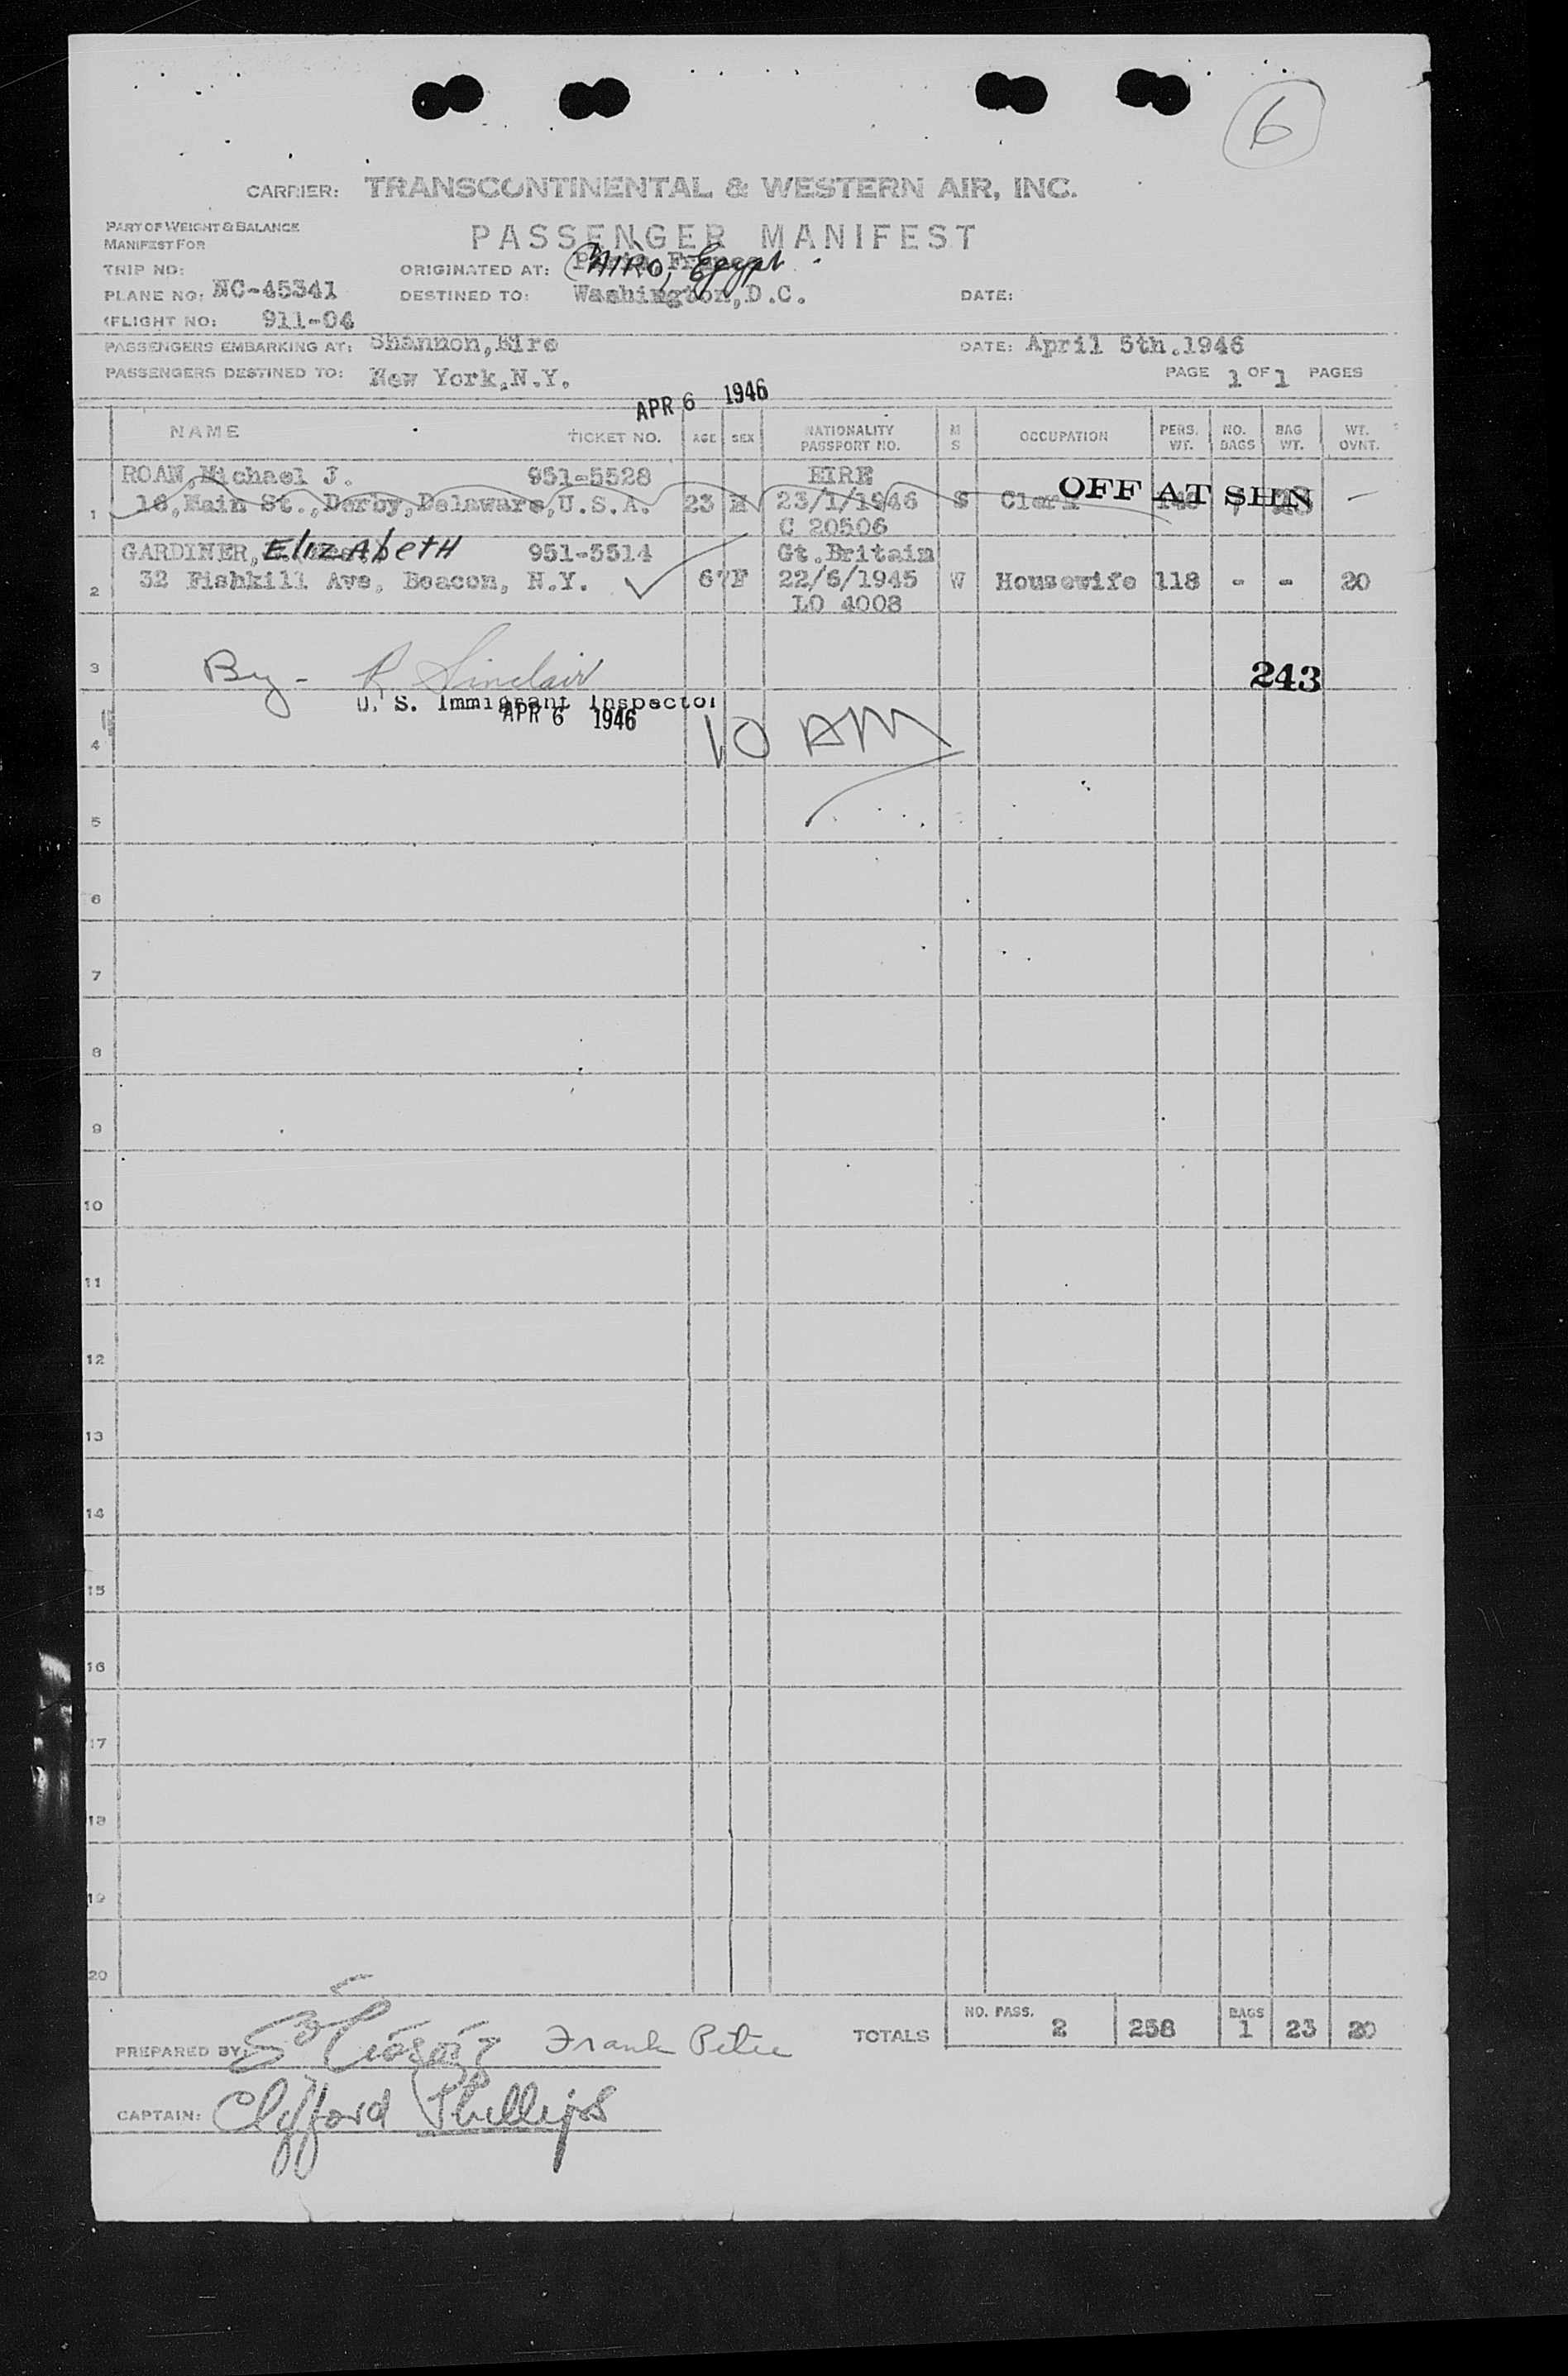 6
CARRIER: TRANSCONTINENTAL & WESTERN AIR, INC.
PART OF WEIGHT & BALANCE
MANIFEST FOR
PASSENGER MANIFEST
TRIP NO:
ORIGINATED AT: CAIRO, Egypt
PLANE NO: NC-45341
DESTINED TO: Washington, D.C.
DATE:
FLIGHT NO: 911-04
PASSENGERS EMBARKING AT: Shannon, Eire
DATE: April 5th.1946
PASSENGERS DESTINED TO: New York, N.Y.
PAGE 1 OF 1 PAGES
APR 6 1946
NAME TICKET NO. AGE SEX NATIONALITY PASSPORT NO. M S OCCUPATION PERS. WT. NO. BAGS BAG WT. WT. OVNT.
ROAN, Michael J. 951-5528 EIRE
1 16, Main St., Derby, Delaware, U.S.A. 23 M 23/1/1946 S Clerk OFF AT SHN
C 20506
GARDINER, ElizAbetH 951-5514 Gt.Britain
2 32 Fishkill Ave, Beacon, N.Y. 67 F 22/6/1945 W Housewife 118 - - 20
LO 4008
3 By - R Sinclair 243
U. S. Immigrant Inspector
APR 6 1946
4 10 AM
5
6
7
8
9
10
11
12
13
14
15
16
17
18
19
20
TOTALS NO. PASS. 2 258 BAGS 1 23 20
PREPARED BY: Frank
CAPTAIN: Clifford Phillips